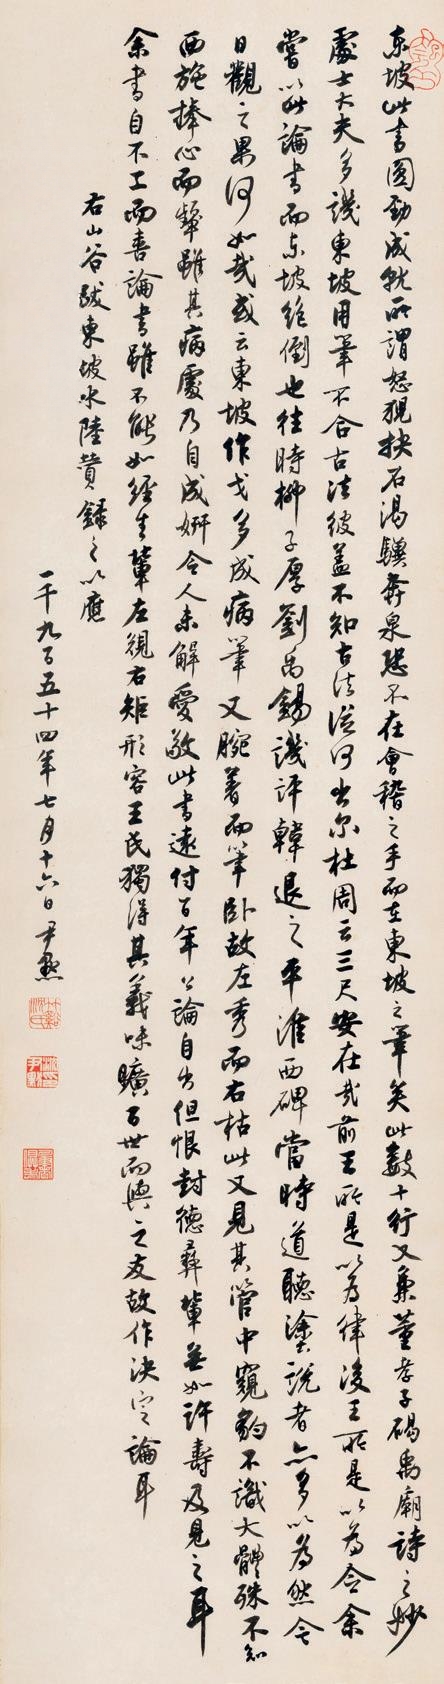 东坡此書圓勁成就所謂怒猊抉石渴驥奔泉恐不在會稽之手而在東坡之筆矣此數十行又兼董孝子碣禹廟詩之妙
處士大夫多譏東坡用筆不合古法彼蓋不知古法從何出尔杜周云三尺安在哉前王所是以為律後王所是以為令余
嘗以此論書而东坡絶倒也往時柳子厚劉禹錫譏評韓退之平淮西碑當時道聽塗說者亦多以為然今
日觀之果何如哉或云東坡作戈多成病筆又腕著而筆卧故左秀而右枯此又見其管中窺豹不識大體殊不知
西施捧心而顰雖其病處乃自成妍今人未解愛敬此書遠付百年公論自出但恨封德彞輩無如許壽及見之耳
余書自不工而喜論書雖不能如經生輩左規右矩形容王氏獨得其義味曠百世而與之友故作決定論耳
右山谷跋東坡水陸贊録之以應
一千九百五十四年七月十六日尹默
沈氏
尹默